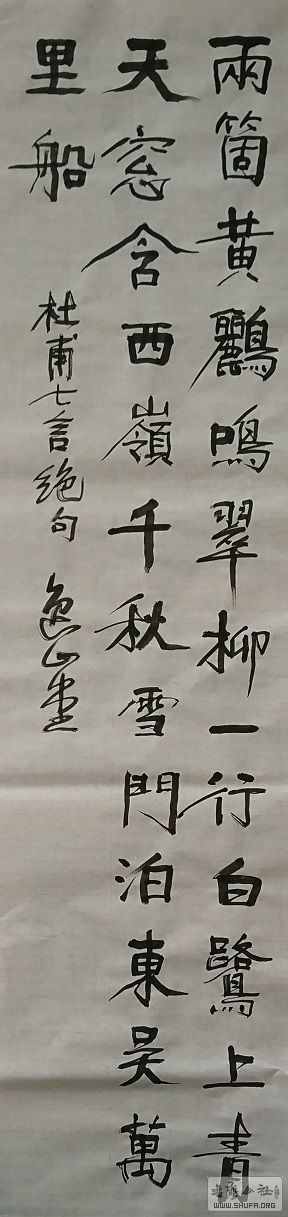 兩箇黃鸝鳴翠柳一行白鷺上青
天窓含西嶺千秋雪門泊東吳萬
里船
杜甫七言絶句
書法公社
WWW.SHUFA.ORG